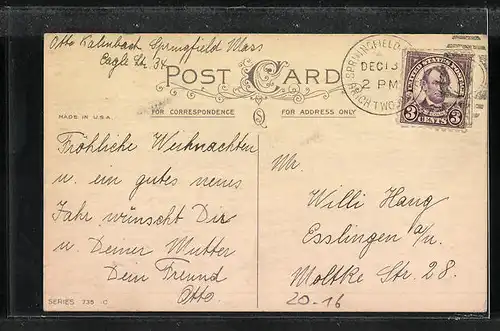 Otto Kalmbach Springfield Mass
Eagle Str. 34
POST CARD
FOR CORRESPONDENCE
FOR ADDRESS ONLY
MADE IN U.S.A.
SPRINGFIELD
DEC 13
2 PM
BRANCH TWO
UNITED STATES POSTAGE
3 CENTS 3
Fröhliche Weihnachten
u. ein gutes neues
Jahr wünscht Dir
u. Deiner Mutter
Dein Freund
Otto.
Mr.
Willi Haug
Esslingen a/n.
Moltke Str. 28.
20-16
SERIES 735 C